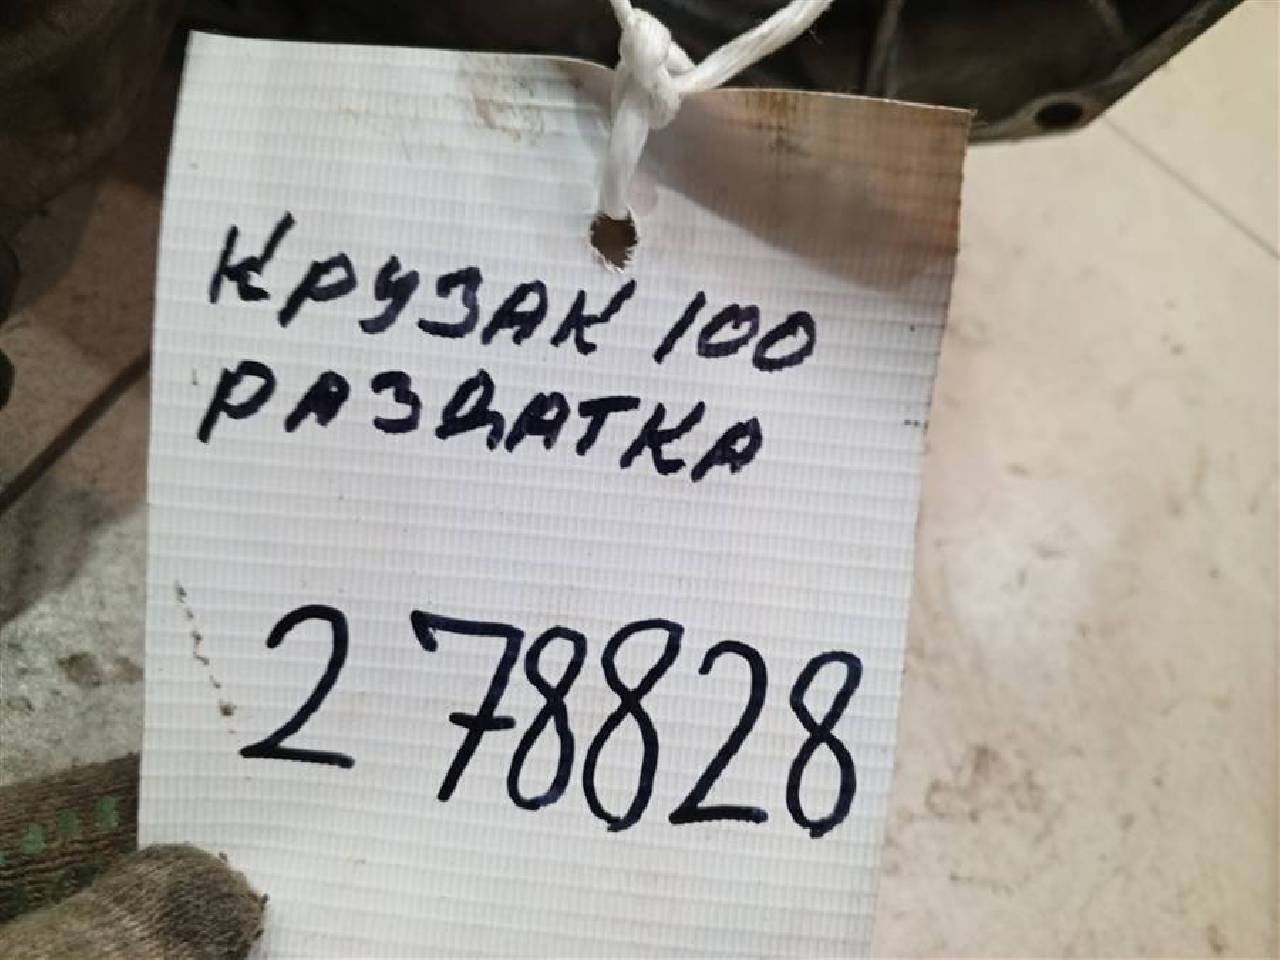 КРУЗАК 100
РАЗДАТКА
278828